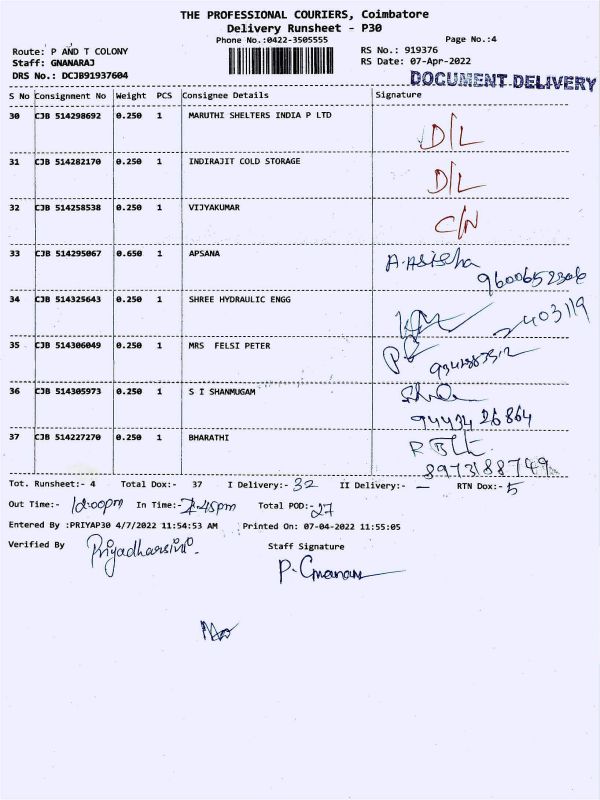 THE PROFESSIONAL COURIERS, Coimbatore
Delivery Runsheet - P30
Phone No.:0422-3505555
Page No.:4
Route: P AND T COLONY
RS No.: 919376
Staff: GNANARAJ
RS Date: 07-Apr-2022
DRS No.: DCJB91937604
DOCUMENT DELIVERY
S No Consignment No Weight PCS Consignee Details Signature
30 CJB 514298692 0.250 1 MARUTHI SHELTERS INDIA P LTD D/L
31 CJB 514282170 0.250 1 INDIRAJIT COLD STORAGE D/L
32 CJB 514258538 0.250 1 VIJYAKUMAR C/N
33 CJB 514295067 0.650 1 APSANA
34 CJB 514325643 0.250 1 SHREE HYDRAULIC ENGG 403119
35 CJB 514306049 0.250 1 MRS FELSI PETER
36 CJB 514305973 0.250 1 S I SHANMUGAM
94434 26864
37 CJB 514227270 0.250 1 BHARATHI
8973188749
Tot. Runsheet:- 4 Total Dox:- 37 I Delivery:- 32 II Delivery:- — RTN Dox:- 5
Out Time:- 12:00pm In Time:- 2:45pm Total POD:- 27
Entered By :PRIYAP30 4/7/2022 11:54:53 AM Printed On: 07-04-2022 11:55:05
Verified By Priyadharsini Staff Signature
P. Gnanaraj